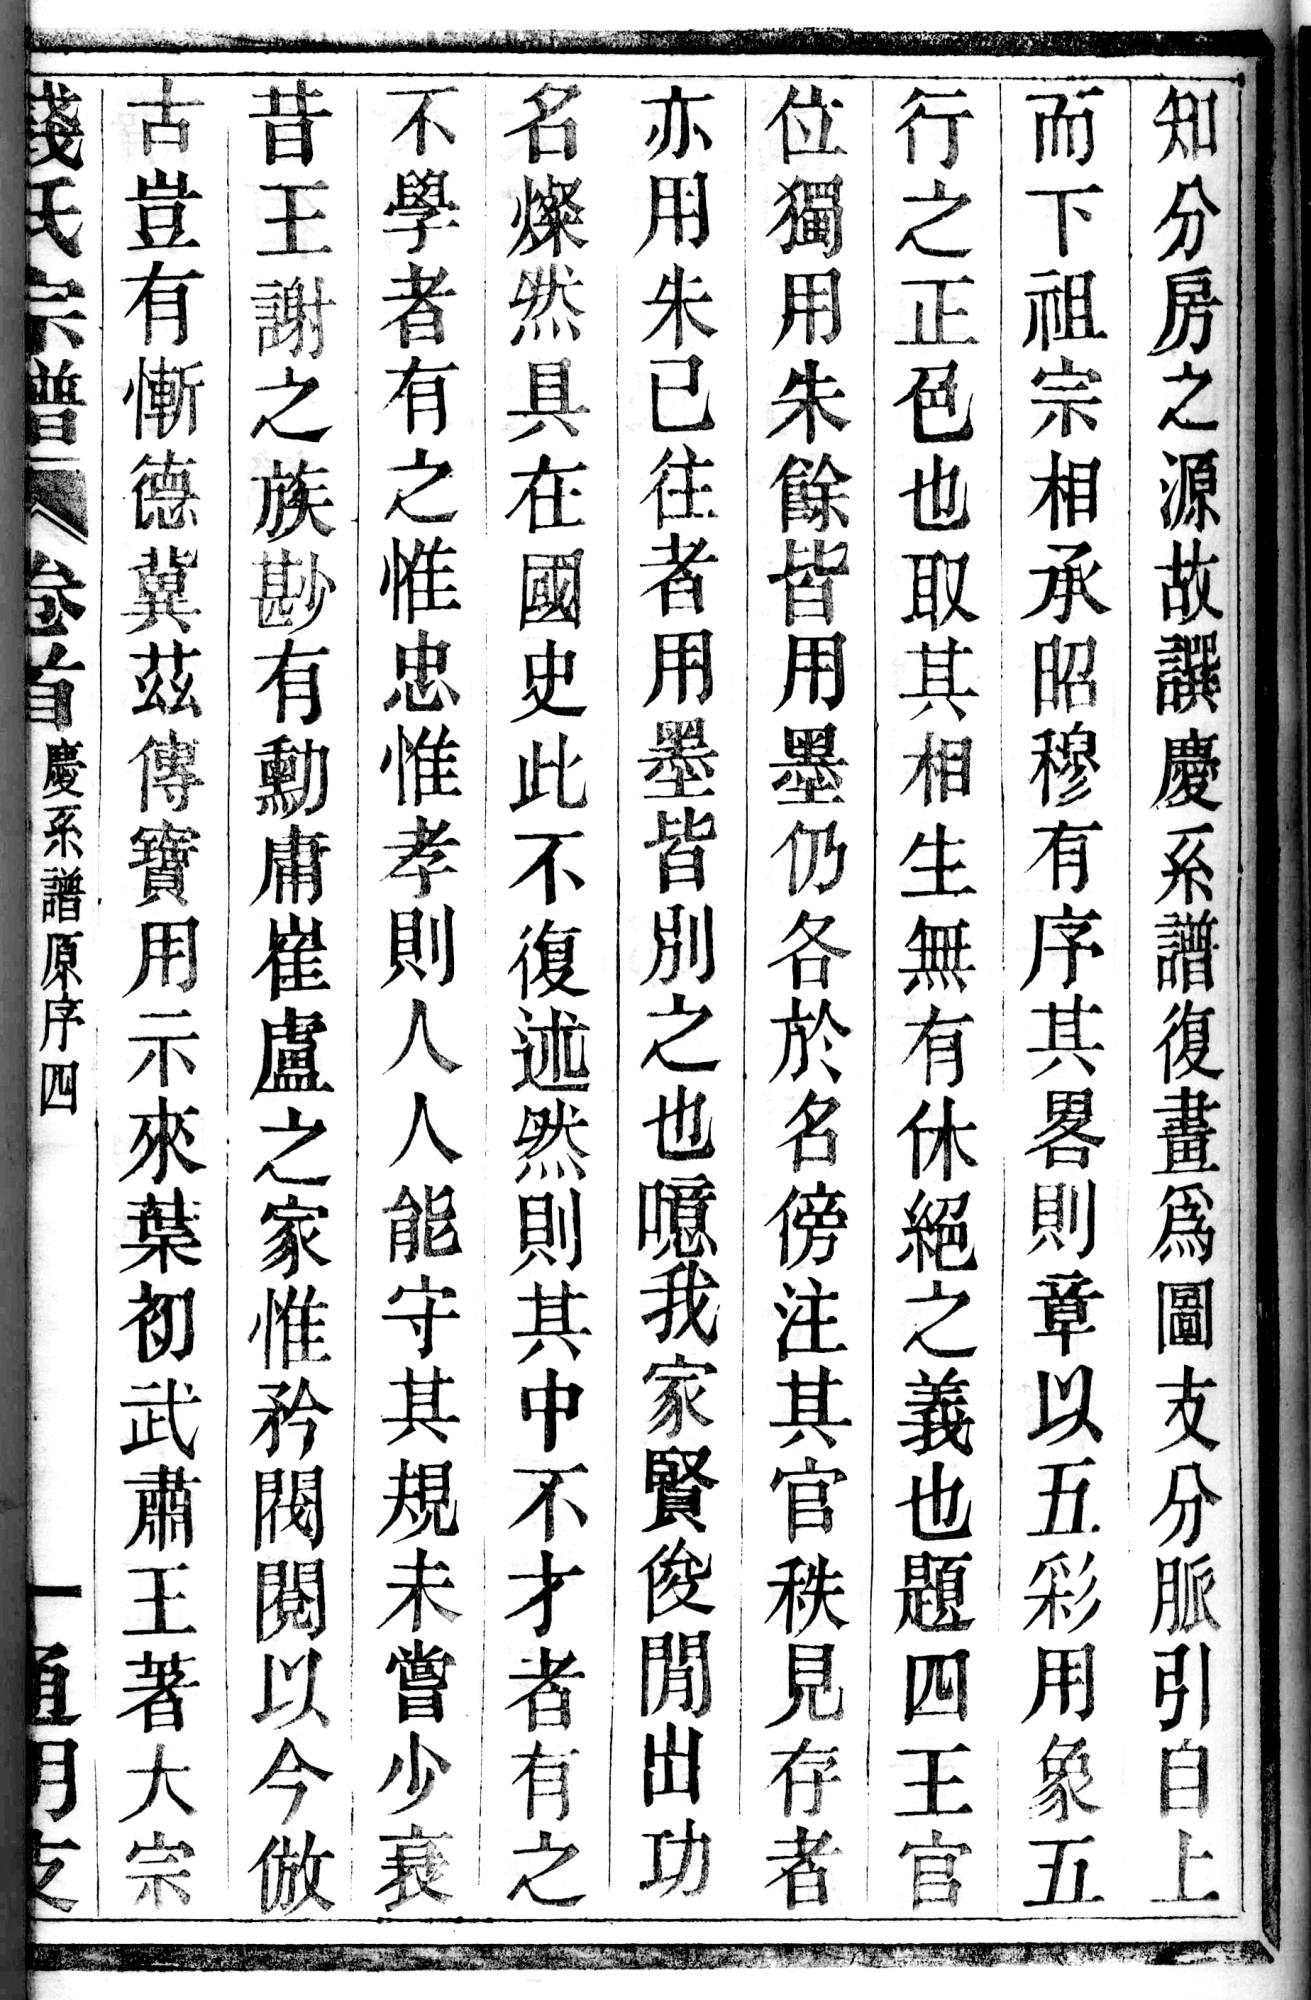 知分房之源故譔慶系譜復畫爲圖支分脈引自上
而下祖宗相承昭穆有序其畧則章以五彩用象五
行之正色也取其相生無有休絕之義也題四王官
位獨用朱餘皆用墨仍各於名傍注其官秩見存者
亦用朱已往者用墨皆別之也噫我家賢俊閒出功
名燦然具在國史此不復述然則其中不才者有之
不學者有之惟忠惟孝則人人能守其規未嘗少衰
昔王謝之族尠有勳庸崔盧之家惟矜閥閱以今倣
古豈有慚德冀茲傳寶用示來葉初武肅王著大宗
錢氏宗譜 卷首 慶系譜原序四 一 通明支